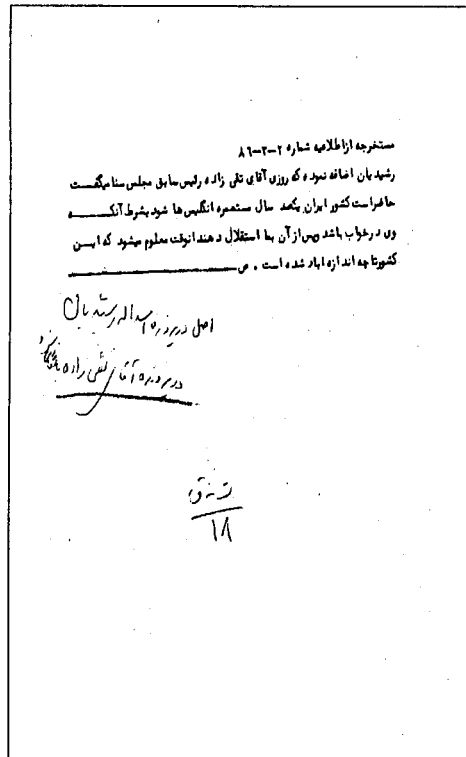 مستخرجه ازاطلاعیه شماره ۲-۳-۸۶
رشیدیان اضافه نموده که روزی آقای تقی زاده رئیس سابق مجلس سنا میگفت
حاضراست کشور ایران یکصد سال مستعمره انگلیس ها شود بشرط آنکه
وی درخواب باشد وپس از آن بما استقلال دهند آنوقت معلوم میشود که این
کشورتاچه اندازه اباد شده است . ص
اصل در پرونده اسداله رشیدیان
در پرونده آقای تقی زاده
۱۸